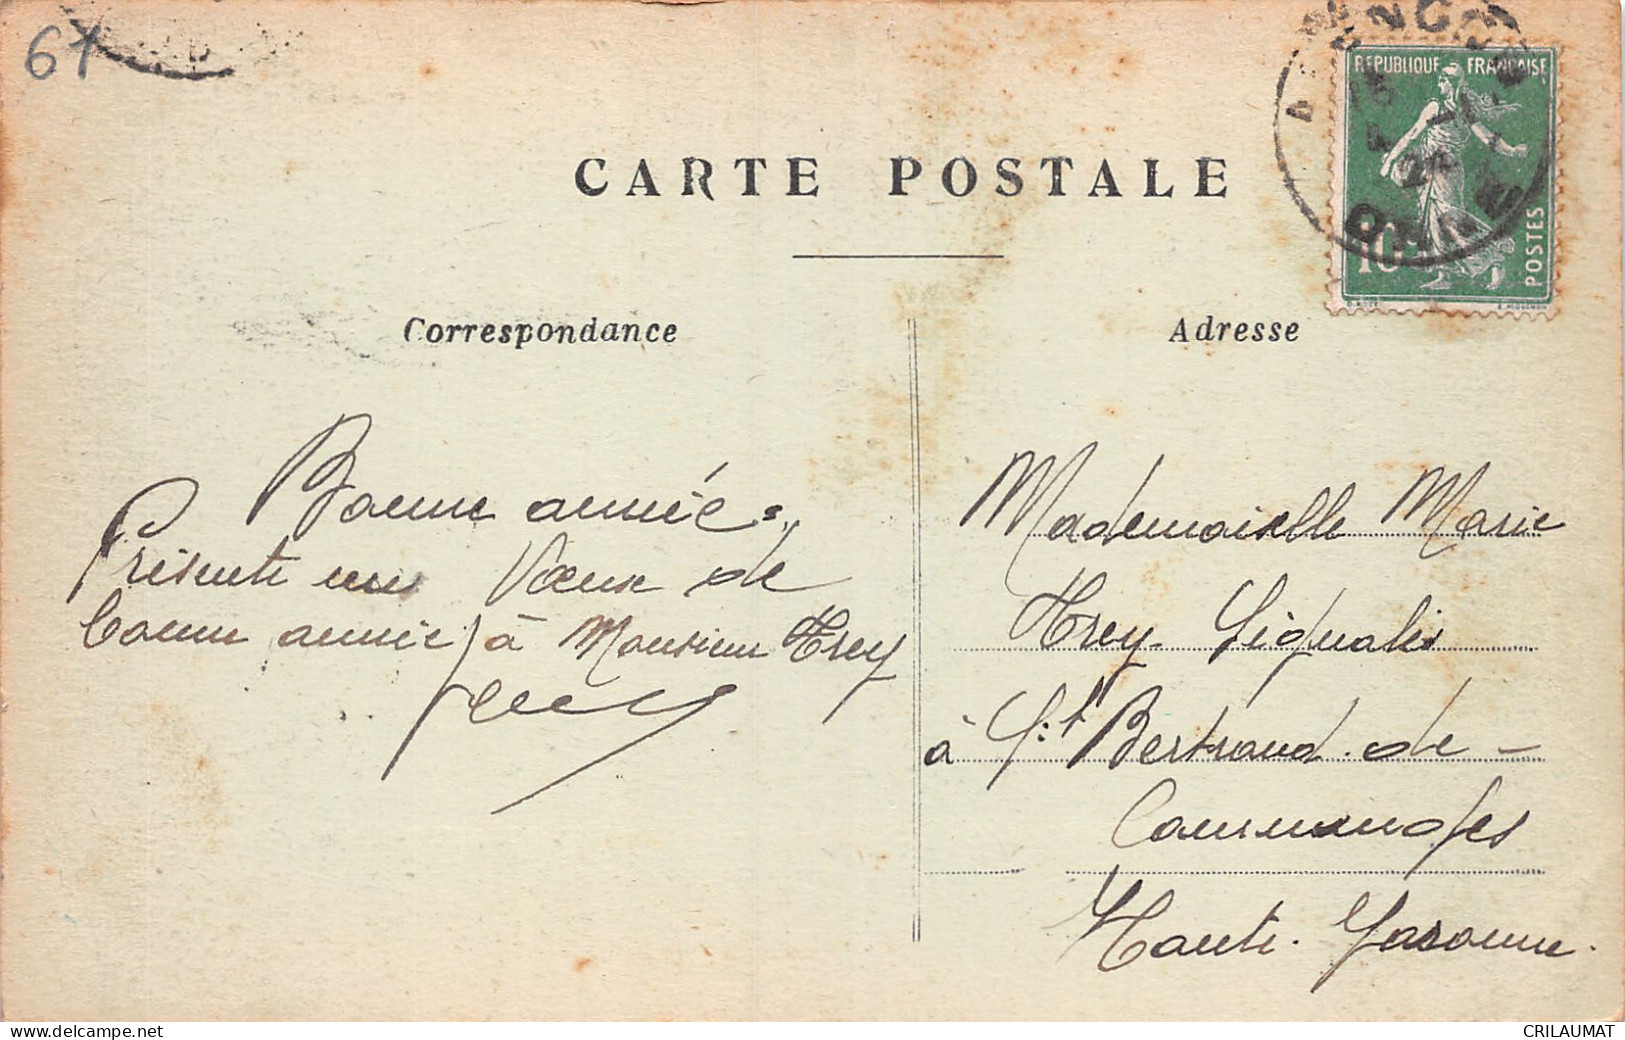 67
CARTE POSTALE
REPUBLIQUE FRANÇAISE
10
POSTES
ORNE
Correspondance
Adresse
Bonne année
Présente mes Vœux de
bonne année à Monsieur Trey
Mademoiselle Marie
Trey
à St Bertrand de
Comminges
Haute-Garonne.
www.delcampe.net
CRILAUMAT